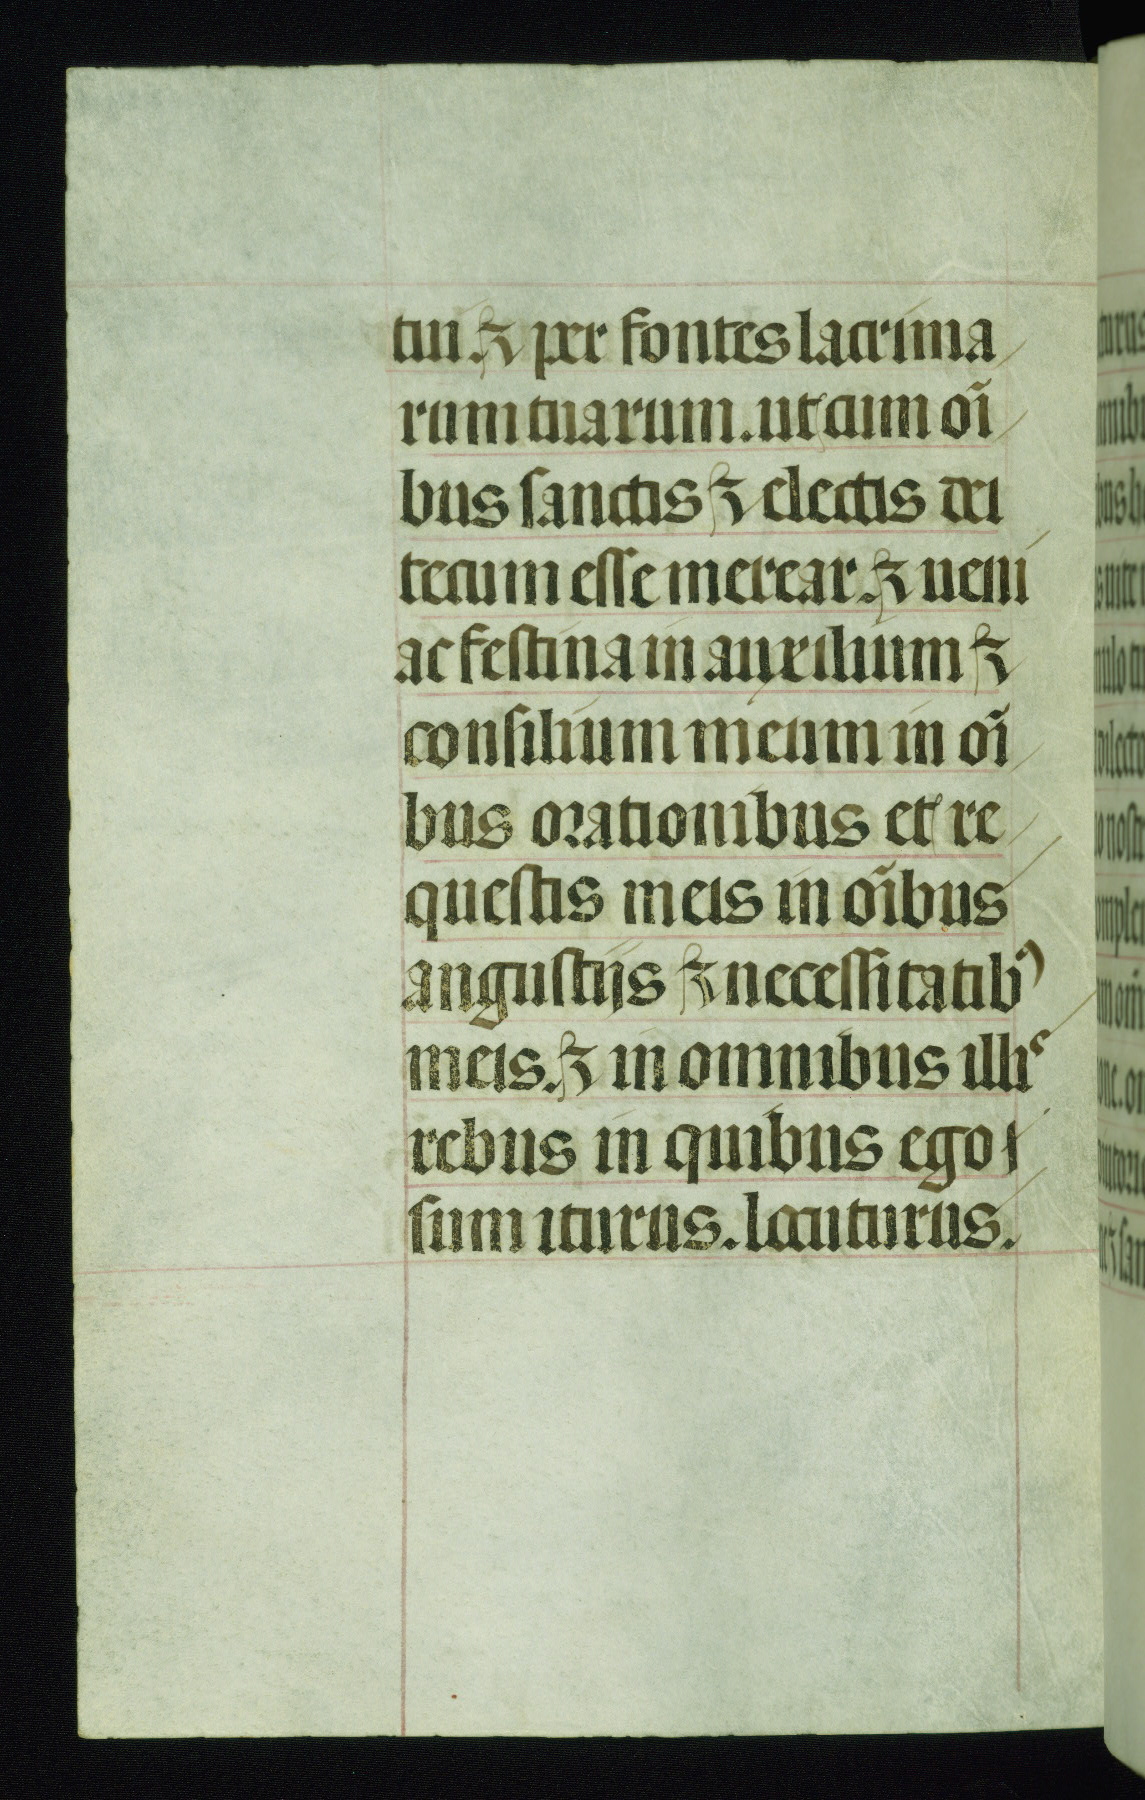 tui. ⁊ per fontes lacrima
rum tuarum. ut cum oī
bus sanctis ⁊ electis dei
tecum esse merear. ⁊ ueni
ac festina in auxilium ⁊
consilium meum in oī
bus orationibus et re
questis meis in oībus
angustijs ⁊ necessitatibꝰ
meis. ⁊ in omnibus illis
rebus in quibus ego
sum iturus. locuturus.